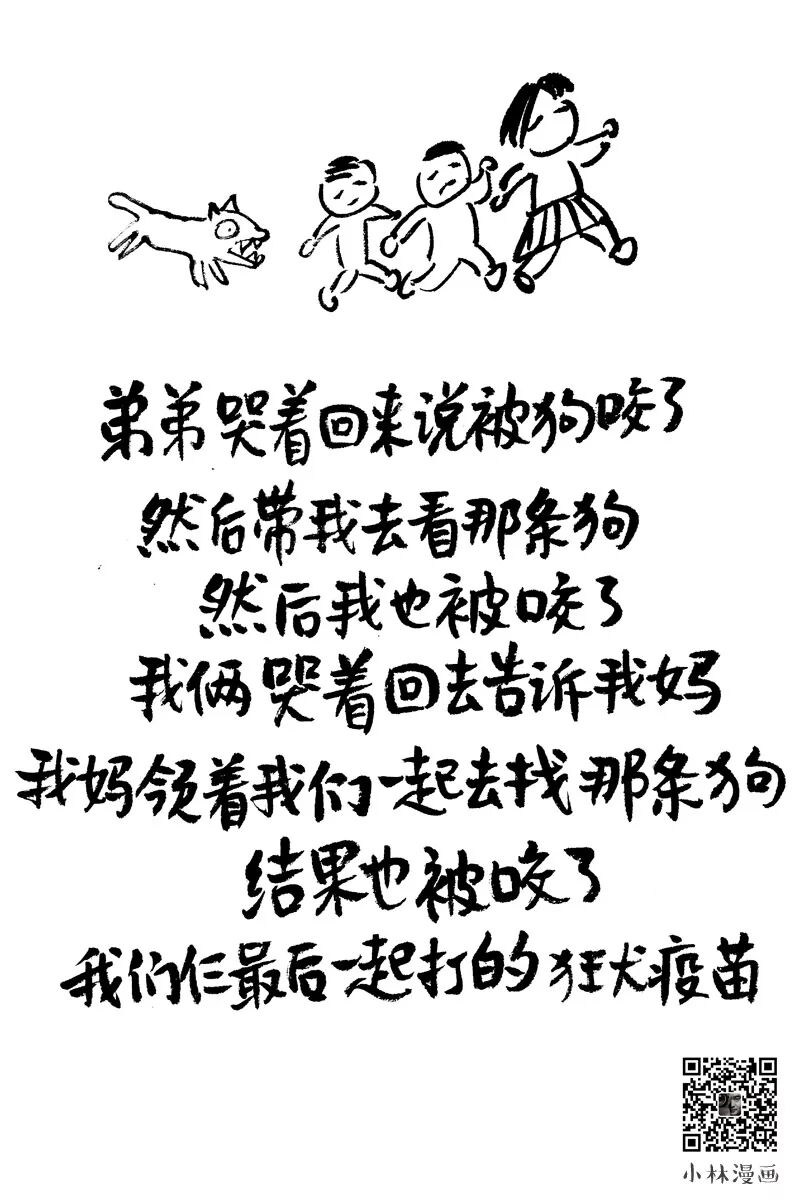 弟弟哭着回来说被狗咬了
然后带我去看那条狗
然后我也被咬了
我俩哭着回去告诉我妈
我妈领着我们一起去找那条狗
结果也被咬了
我们仨最后一起打的狂犬疫苗
小林漫画